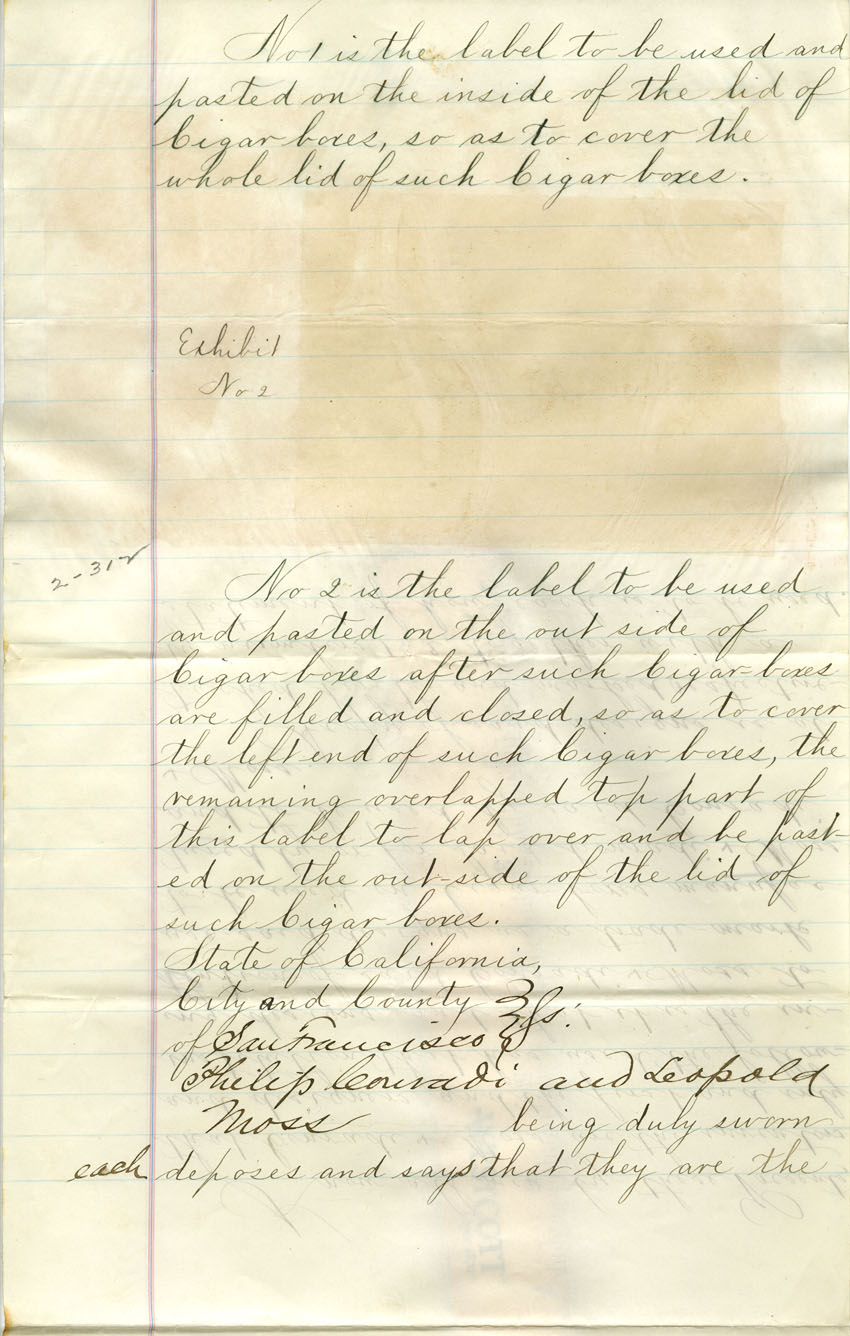 No 1 is the label to be used and
pasted on the inside of the lid of
Cigar boxes, so as to cover the
whole lid of such Cigar boxes.
Exhibit
No 2
2-312
No 2 is the label to be used
and pasted on the out side of
Cigar boxes after such Cigar-boxes
are filled and closed, so as to cover
the left end of such Cigar boxes, the
remaining overlapped top part of
this label to lap over and be past-
ed on the out-side of the lid of
such Cigar boxes.
State of California,
City and County } ss.
of San Francisco }
Philip Conradi and Leopold
Moss being duly sworn
each deposes and says that they are the